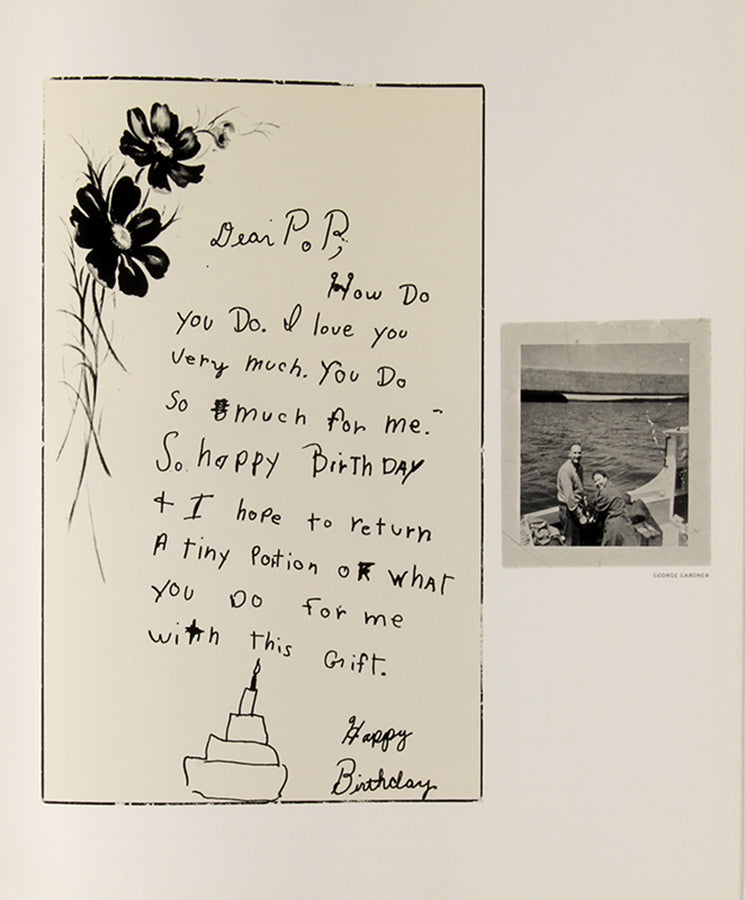 Dear PoP,
How Do
you Do. I love you
very much. You Do
So much for me.
So happy BirthDAY
+ I hope to return
A tiny Portion oF WHAT
you DO for me
with this Gift.
Happy
Birthday
GEORGE GARDNER